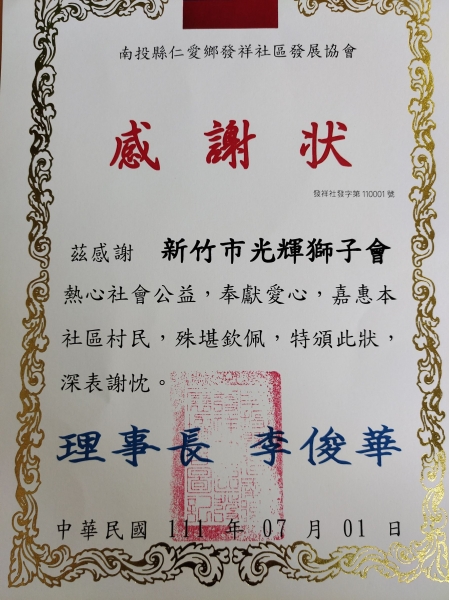 南投縣仁愛鄉發祥社區發展協會
感謝狀
發祥社發字第 110001 號
茲感謝 新竹市光輝獅子會
熱心社會公益，奉獻愛心，嘉惠本
社區村民，殊堪欽佩，特頒此狀，
深表謝忱。
理事長 李俊華
中華民國 111 年 07 月 01 日